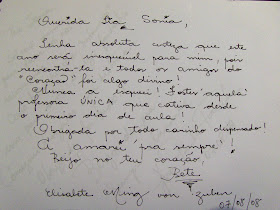 Querida Sta. Sonia,
Tenha absoluta certeza que este
ano será inesquecível para mim, pois
reencontrá-la e todos os amigos do
"Coração" foi algo divino!
Nunca a esqueci! Foste aquela
professora ÚNICA que cativa desde
o primeiro dia de aula!
Obrigada por todo carinho dispensado!
A amarei pra sempre!
Beijo no teu coração,
Bete
Elisabete von Zuben
07/08/08